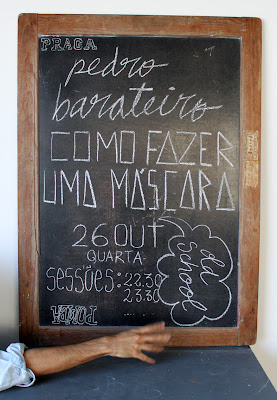 PRAGA
pedro
barateiro
COMO FAZER
UMA MÁSCARA
26 OUT
QUARTA
SESSÕES: 22.30
23.30
Old
School